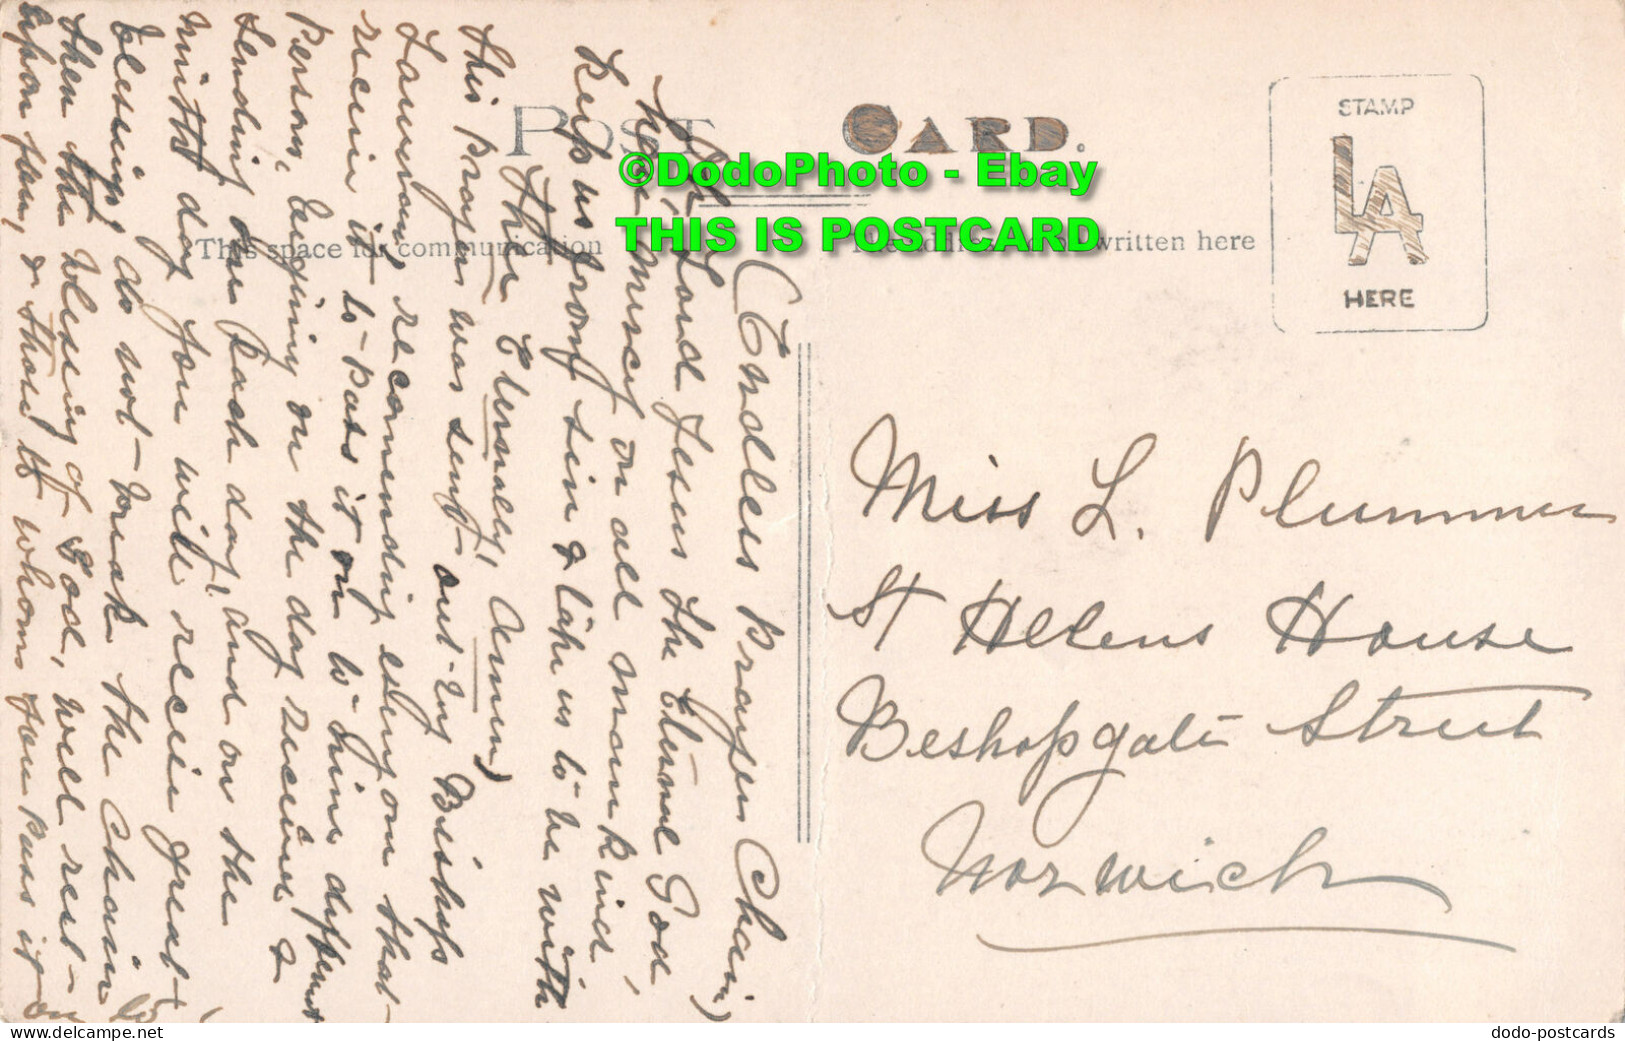 POST CARD.
©DodoPhoto - Ebay
THIS IS POSTCARD
This space for communication
written here
STAMP
LA
HERE
(Endless Prayer Chain)
Oh, Lord Jesus the Eternal God,
have mercy on all mankind,
keep us from sin & take us to be with
Thee Eternally, Amen)
This Prayer was sent out by Bishop
Lawrence, recomending every one that
receive it to pass it on to nine different
Person, begining on the day received &
sending one Each day, and on the
ninth day you will receive great
blessing, do not break the Chain
then the blessing of God, will rest
upon you, & those to whom you pass it on to
Miss L. Plummer
St Helens House
Beshopgate Street
Norwich
www.delcampe.net
dodo-postcards